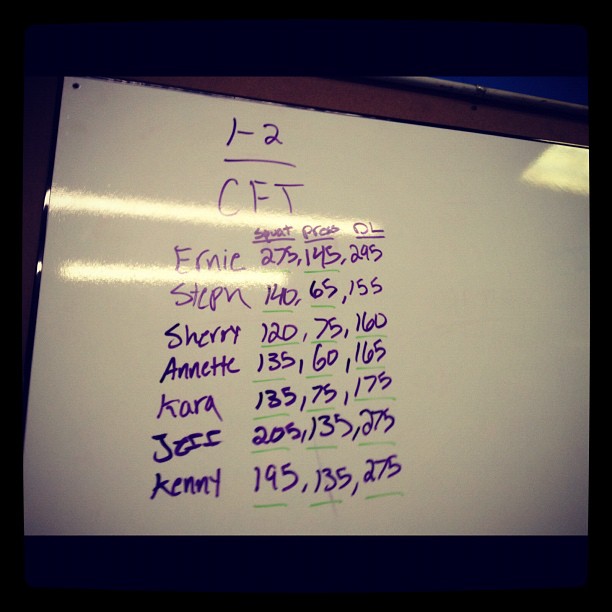 1-2
CFT
Squat Press DL
Ernie 275, 145, 295
Steph 140, 65, 155
Sherry 120, 75, 160
Annette 135, 60, 165
Kara 135, 75, 175
Jeff 205, 135, 275
Kenny 195, 135, 275